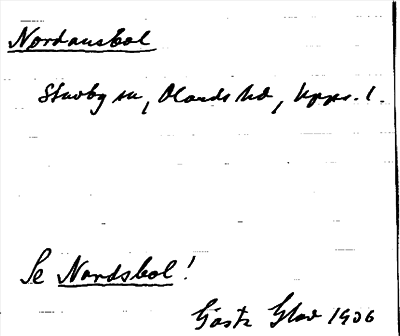 Nordansbol
Stavby sn, Olands hd, Upps. l.
Se Nordsbol!
Gösta Glad 1906